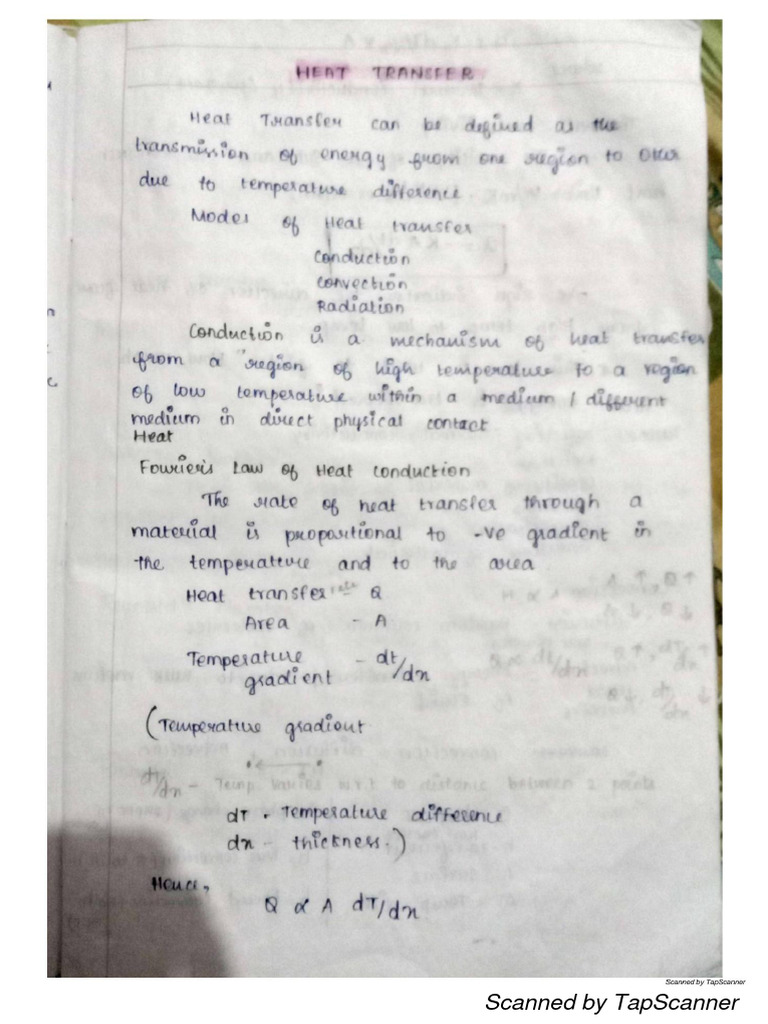 HEAT TRANSFER
Heat Transfer can be defined as the
transmission of energy from one region to other
due to temperature difference.
Modes of Heat transfer
Conduction
Convection
Radiation
Conduction is a mechanism of heat transfer
from a region of high temperature to a region
of low temperature within a medium / different
medium in direct physical contact
Heat
Fourier's Law of Heat conduction
The rate of heat transfer through a
material is propostional to -ve gradient in
the temperature and to the area
Heat transfer rate - Q
Area - A
Temperature gradient - dt/dx
(Temperature gradient
dT/dx - Temp varies w.r.t to distance between 2 points
dT - Temperature difference
dx - thickness.)
Hence,
Q ∝ A dT/dx
Scanned by TapScanner
Scanned by TapScanner